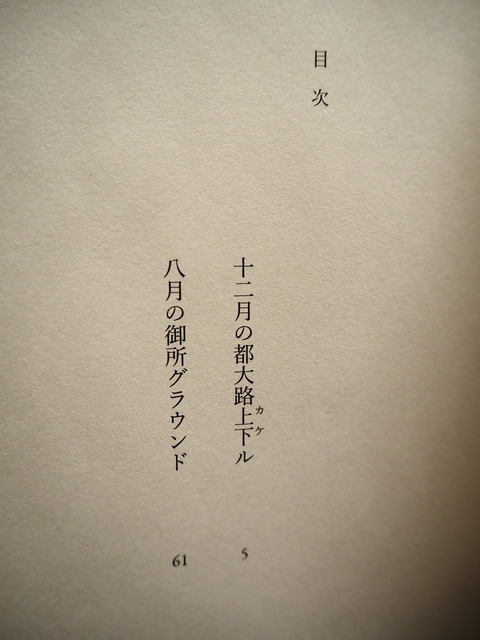 目次
十二月の都大路上下ル
カケ
5
八月の御所グラウンド
61